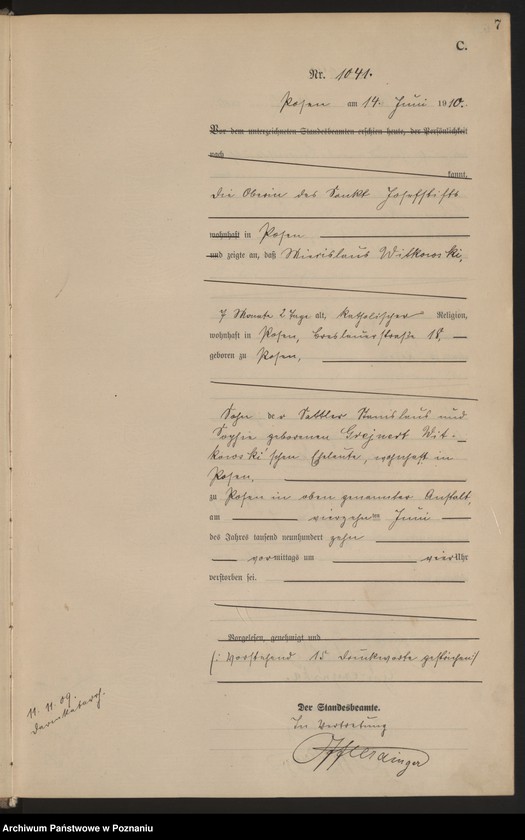 7
C.
Nr. 1041.
Posen am 14. Juni 1910.
Vor dem unterzeichneten Standesbeamten erschien heute, der Persönlichkeit
nach
kannt,
Die Oberin des Sankt Josefstifts
wohnhaft in Posen
und zeigte an, daß Miecislaus Witkowski,
7 Monate 2 Tage alt, katholischer Religion,
wohnhaft in Posen, Breslauerstraße 18,
geboren zu Posen,
Sohn der Sattler Stanislaus und
Sophie geborenen Wit-
kowski'schen Eheleute, wohnhaft in
Posen,
zu Posen in oben genannter Anstalt,
am vierzehnten Juni
des Jahres tausend neunhundert zehn
vormittags um vier Uhr
verstorben sei.
Vorgelesen, genehmigt und
(: Vorstehend 15 Druckworte gestrichen :)
11. 11. 09.
Der Standesbeamte.
In Vertretung
Archiwum Państwowe w Poznaniu